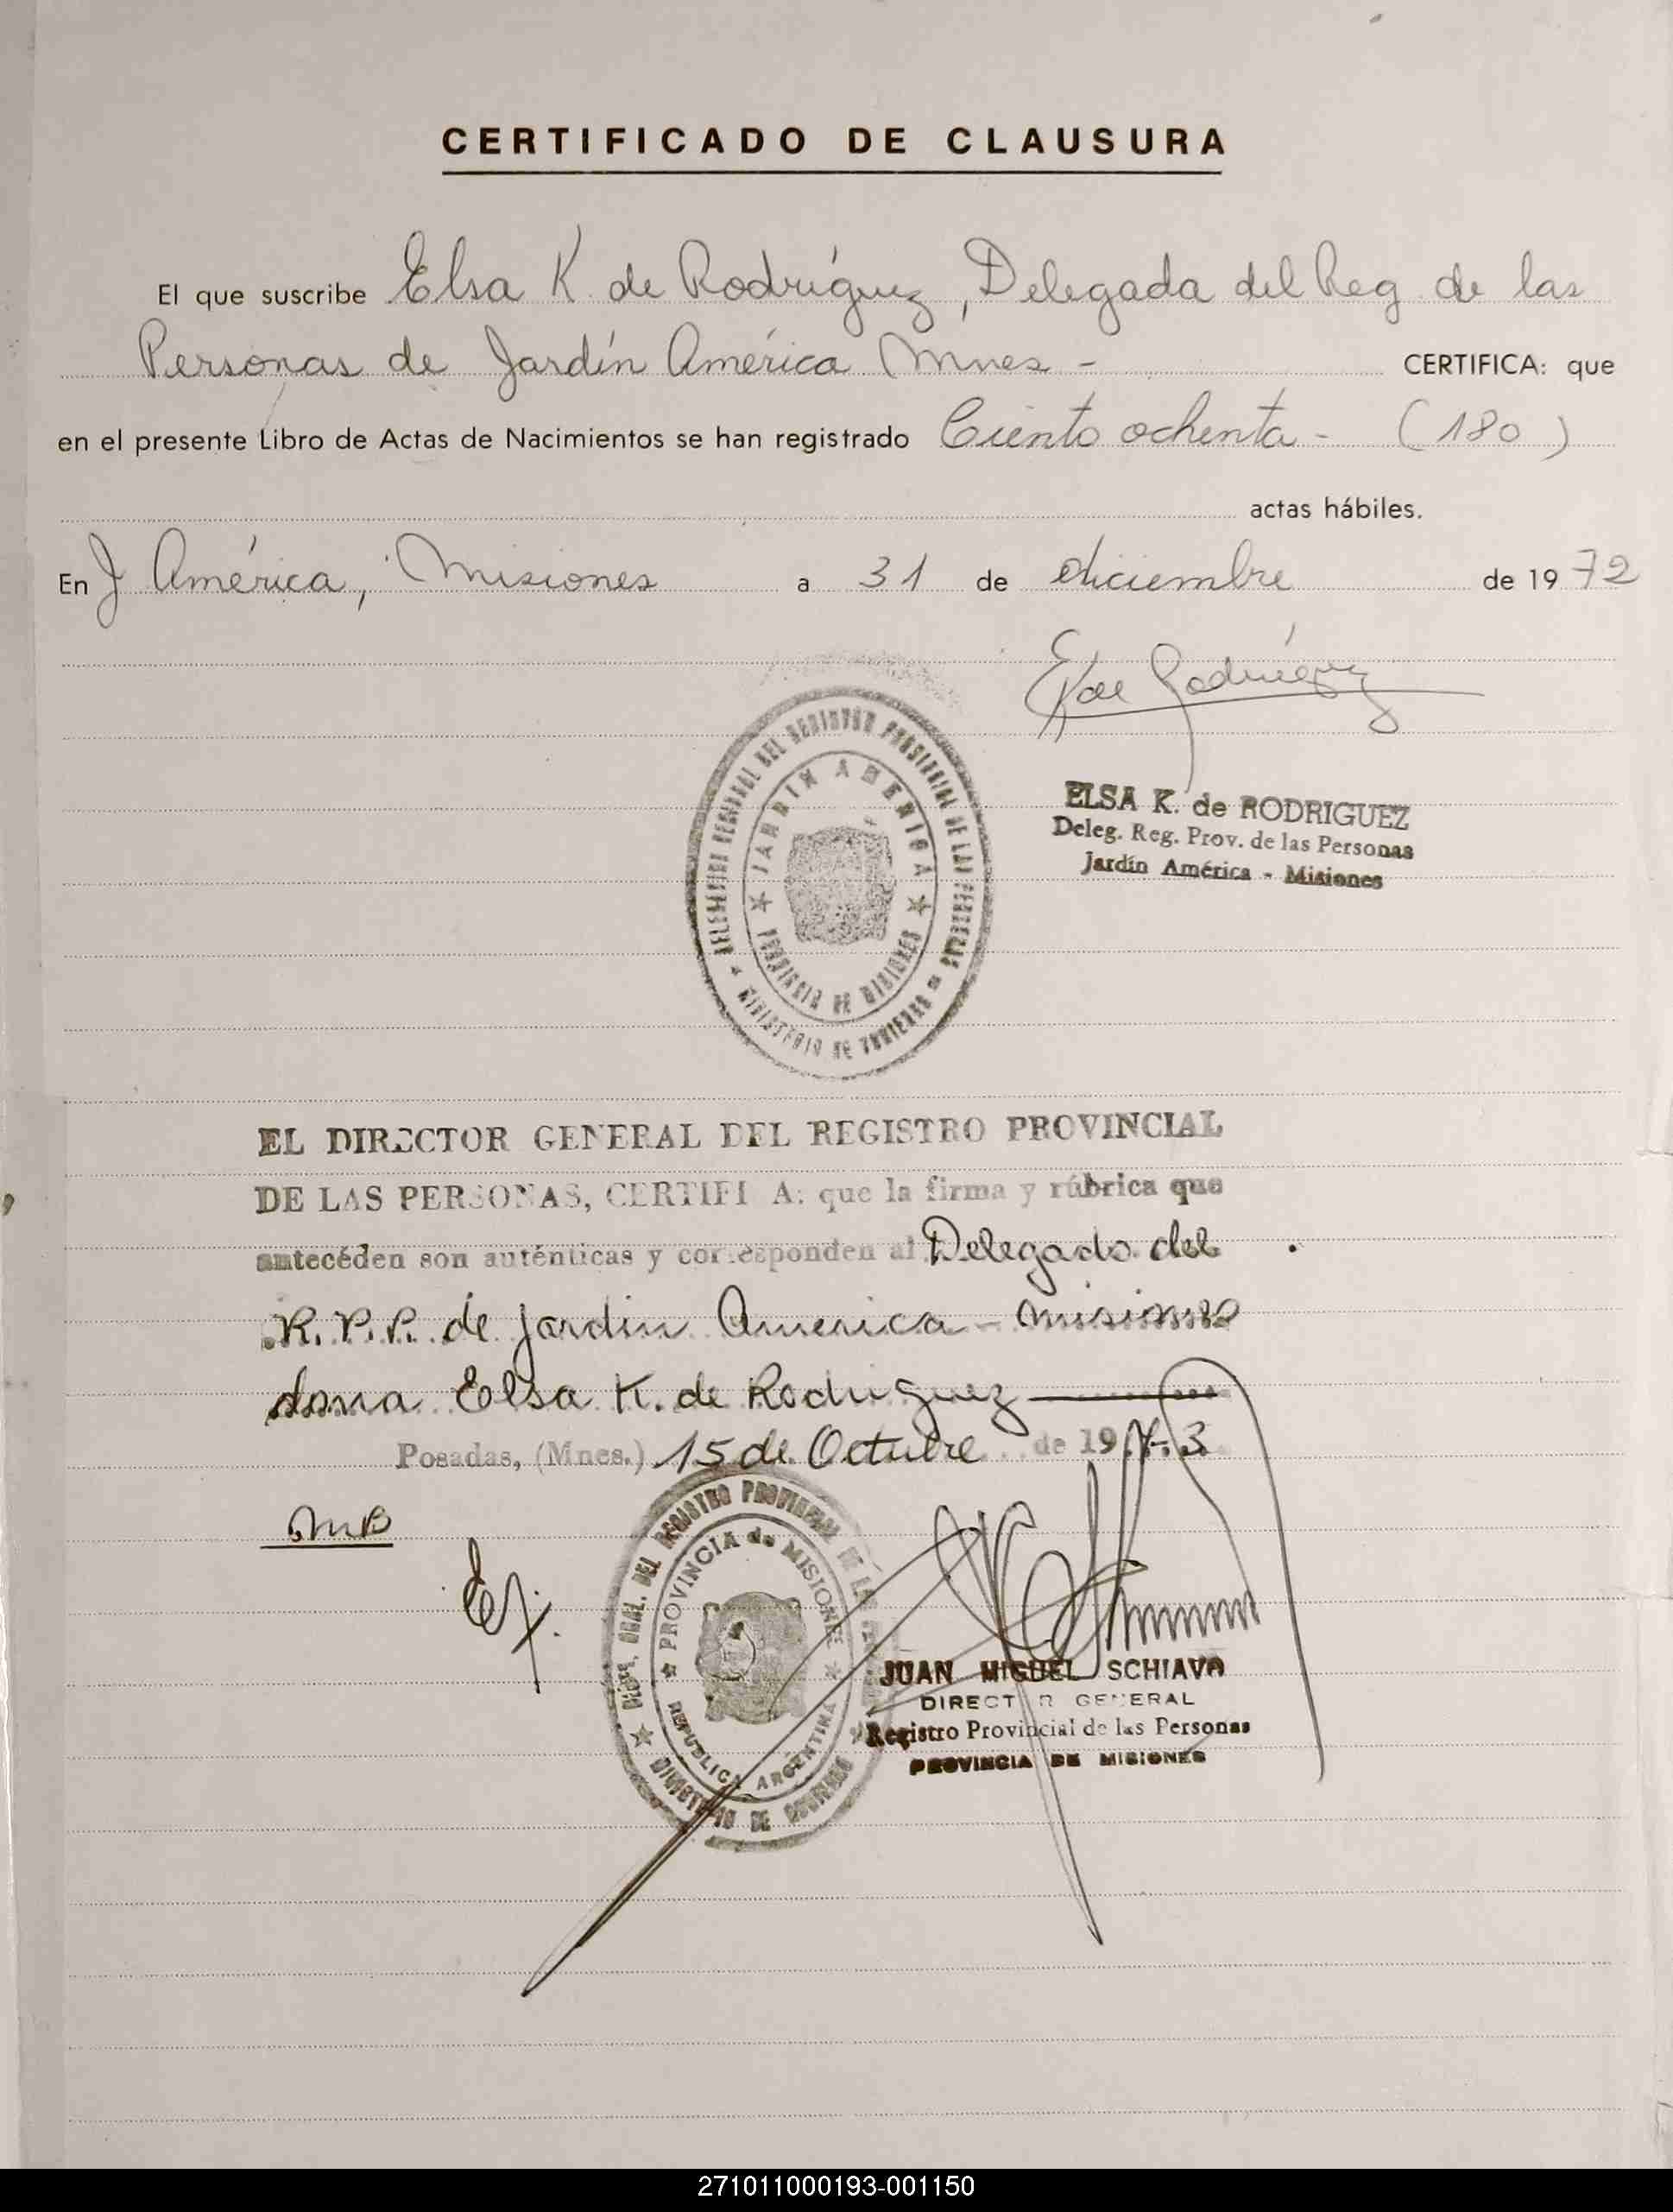 CERTIFICADO DE CLAUSURA
El que suscribe Elsa K. de Rodríguez, Delegada del Reg. de las
Personas de Jardín América Mnes - CERTIFICA: que
en el presente Libro de Actas de Nacimientos se han registrado Ciento ochenta - (180)
actas hábiles.
En J América, Misiones a 31 de diciembre de 1972
EK de Rodríguez
REGIONAL DEL REGISTRO PROVINCIAL DE LAS PERSONAS
JARDIN AMERICA
PROVINCIA DE MISIONES
MINISTERIO DE GOBIERNO
ELSA K. de RODRIGUEZ
Deleg. Reg. Prov. de las Personas
Jardín América - Misiones
EL DIRECTOR GENERAL DEL REGISTRO PROVINCIAL
DE LAS PERSONAS, CERTIFI A: que la firma y rúbrica que
antecéden son auténticas y corresponden al Delegado del
R.P.P. de Jardin America - Misiones
dona Elsa K. de Rodriguez
Posadas, (Mnes.) 15 de Octubre de 197.3
MB
DIREC. GRAL. DEL REGISTRO PROVINCIAL DE LAS
PROVINCIA de MISIONES
REPUBLICA ARGENTINA
MINISTERIO DE GOBIERNO
JUAN MIGUEL SCHIAVO
DIRECTOR GENERAL
Registro Provincial de las Personas
PROVINCIA DE MISIONES
271011000193-001150